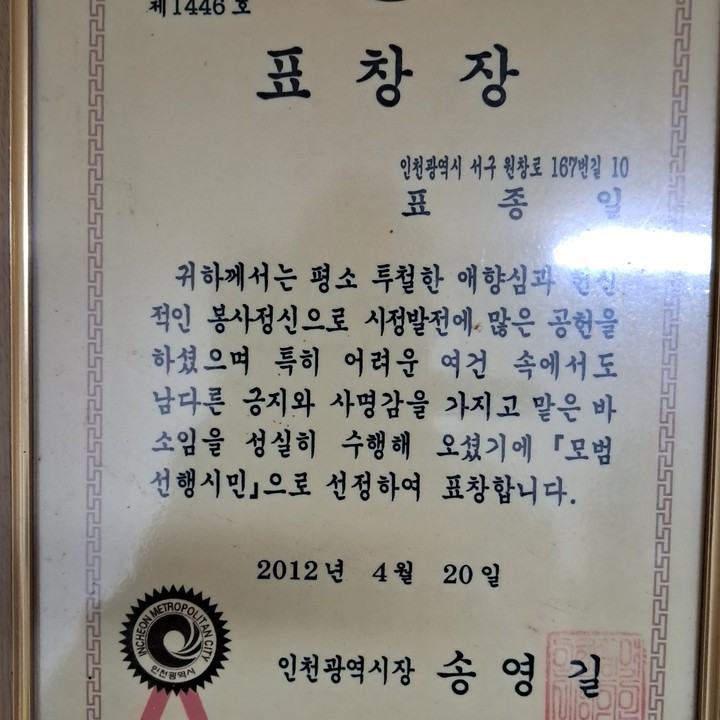 제1446호
표창장
인천광역시 서구 원창로 167번길 10
표 종 일
귀하께서는 평소 투철한 애향심과 헌신
적인 봉사정신으로 시정발전에 많은 공헌을
하셨으며 특히 어려운 여건 속에서도
남다른 긍지와 사명감을 가지고 맡은 바
소임을 성실히 수행해 오셨기에 『모범
선행시민』으로 선정하여 표창합니다.
2012년 4월 20일
INCHEON METROPOLITAN CITY
인천광역시
인천광역시장 송 영 길